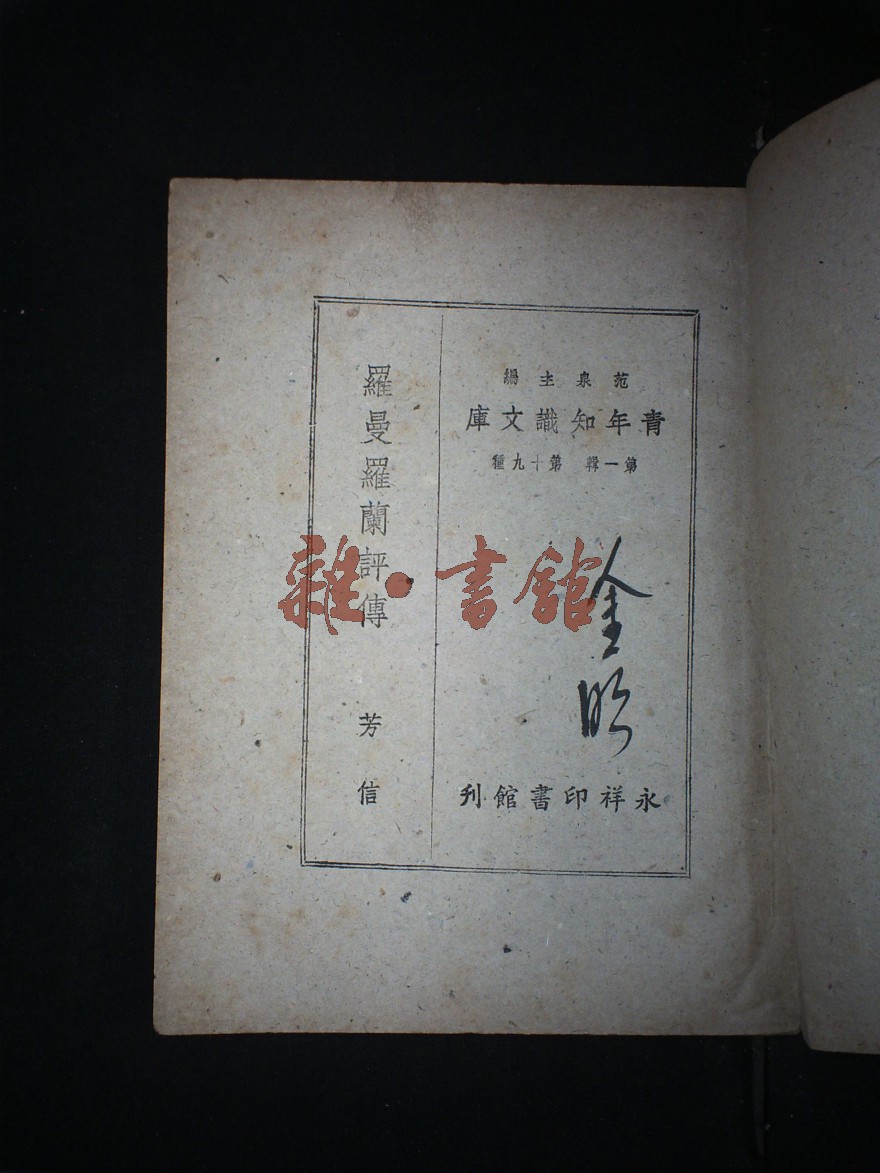 范泉主編
青年知識文庫
第一輯 第十九種
金
永祥印書館刊
羅曼羅蘭評傳
芳信
雜·書館